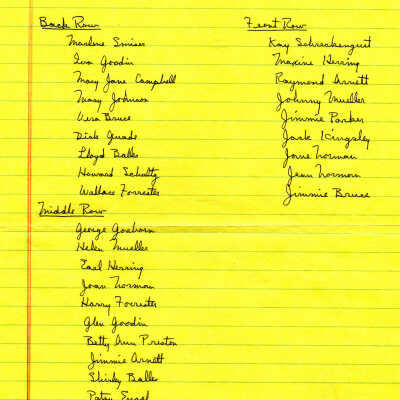 Back Row
Marlene Smiser
Iva Goodin
Mary Jane Campbell
Mary Johnson
Vera Bruce
Dick Quade
Lloyd Balles
Howard Schultz
Wallace Forrester
Middle Row
George Goeborn
Helen Mueller
Earl Herring
Joan Norman
Harry Forrester
Glen Goodin
Betty Ann Preston
Jimmie Arnett
Shirley Balles
Patsy
Front Row
Kay Schreckengust
Maxine Herring
Raymond Arnett
Johnny Mueller
Jimmie Parker
Jack Kingsley
Jane Norman
Jean Norman
Jimmie Bruce